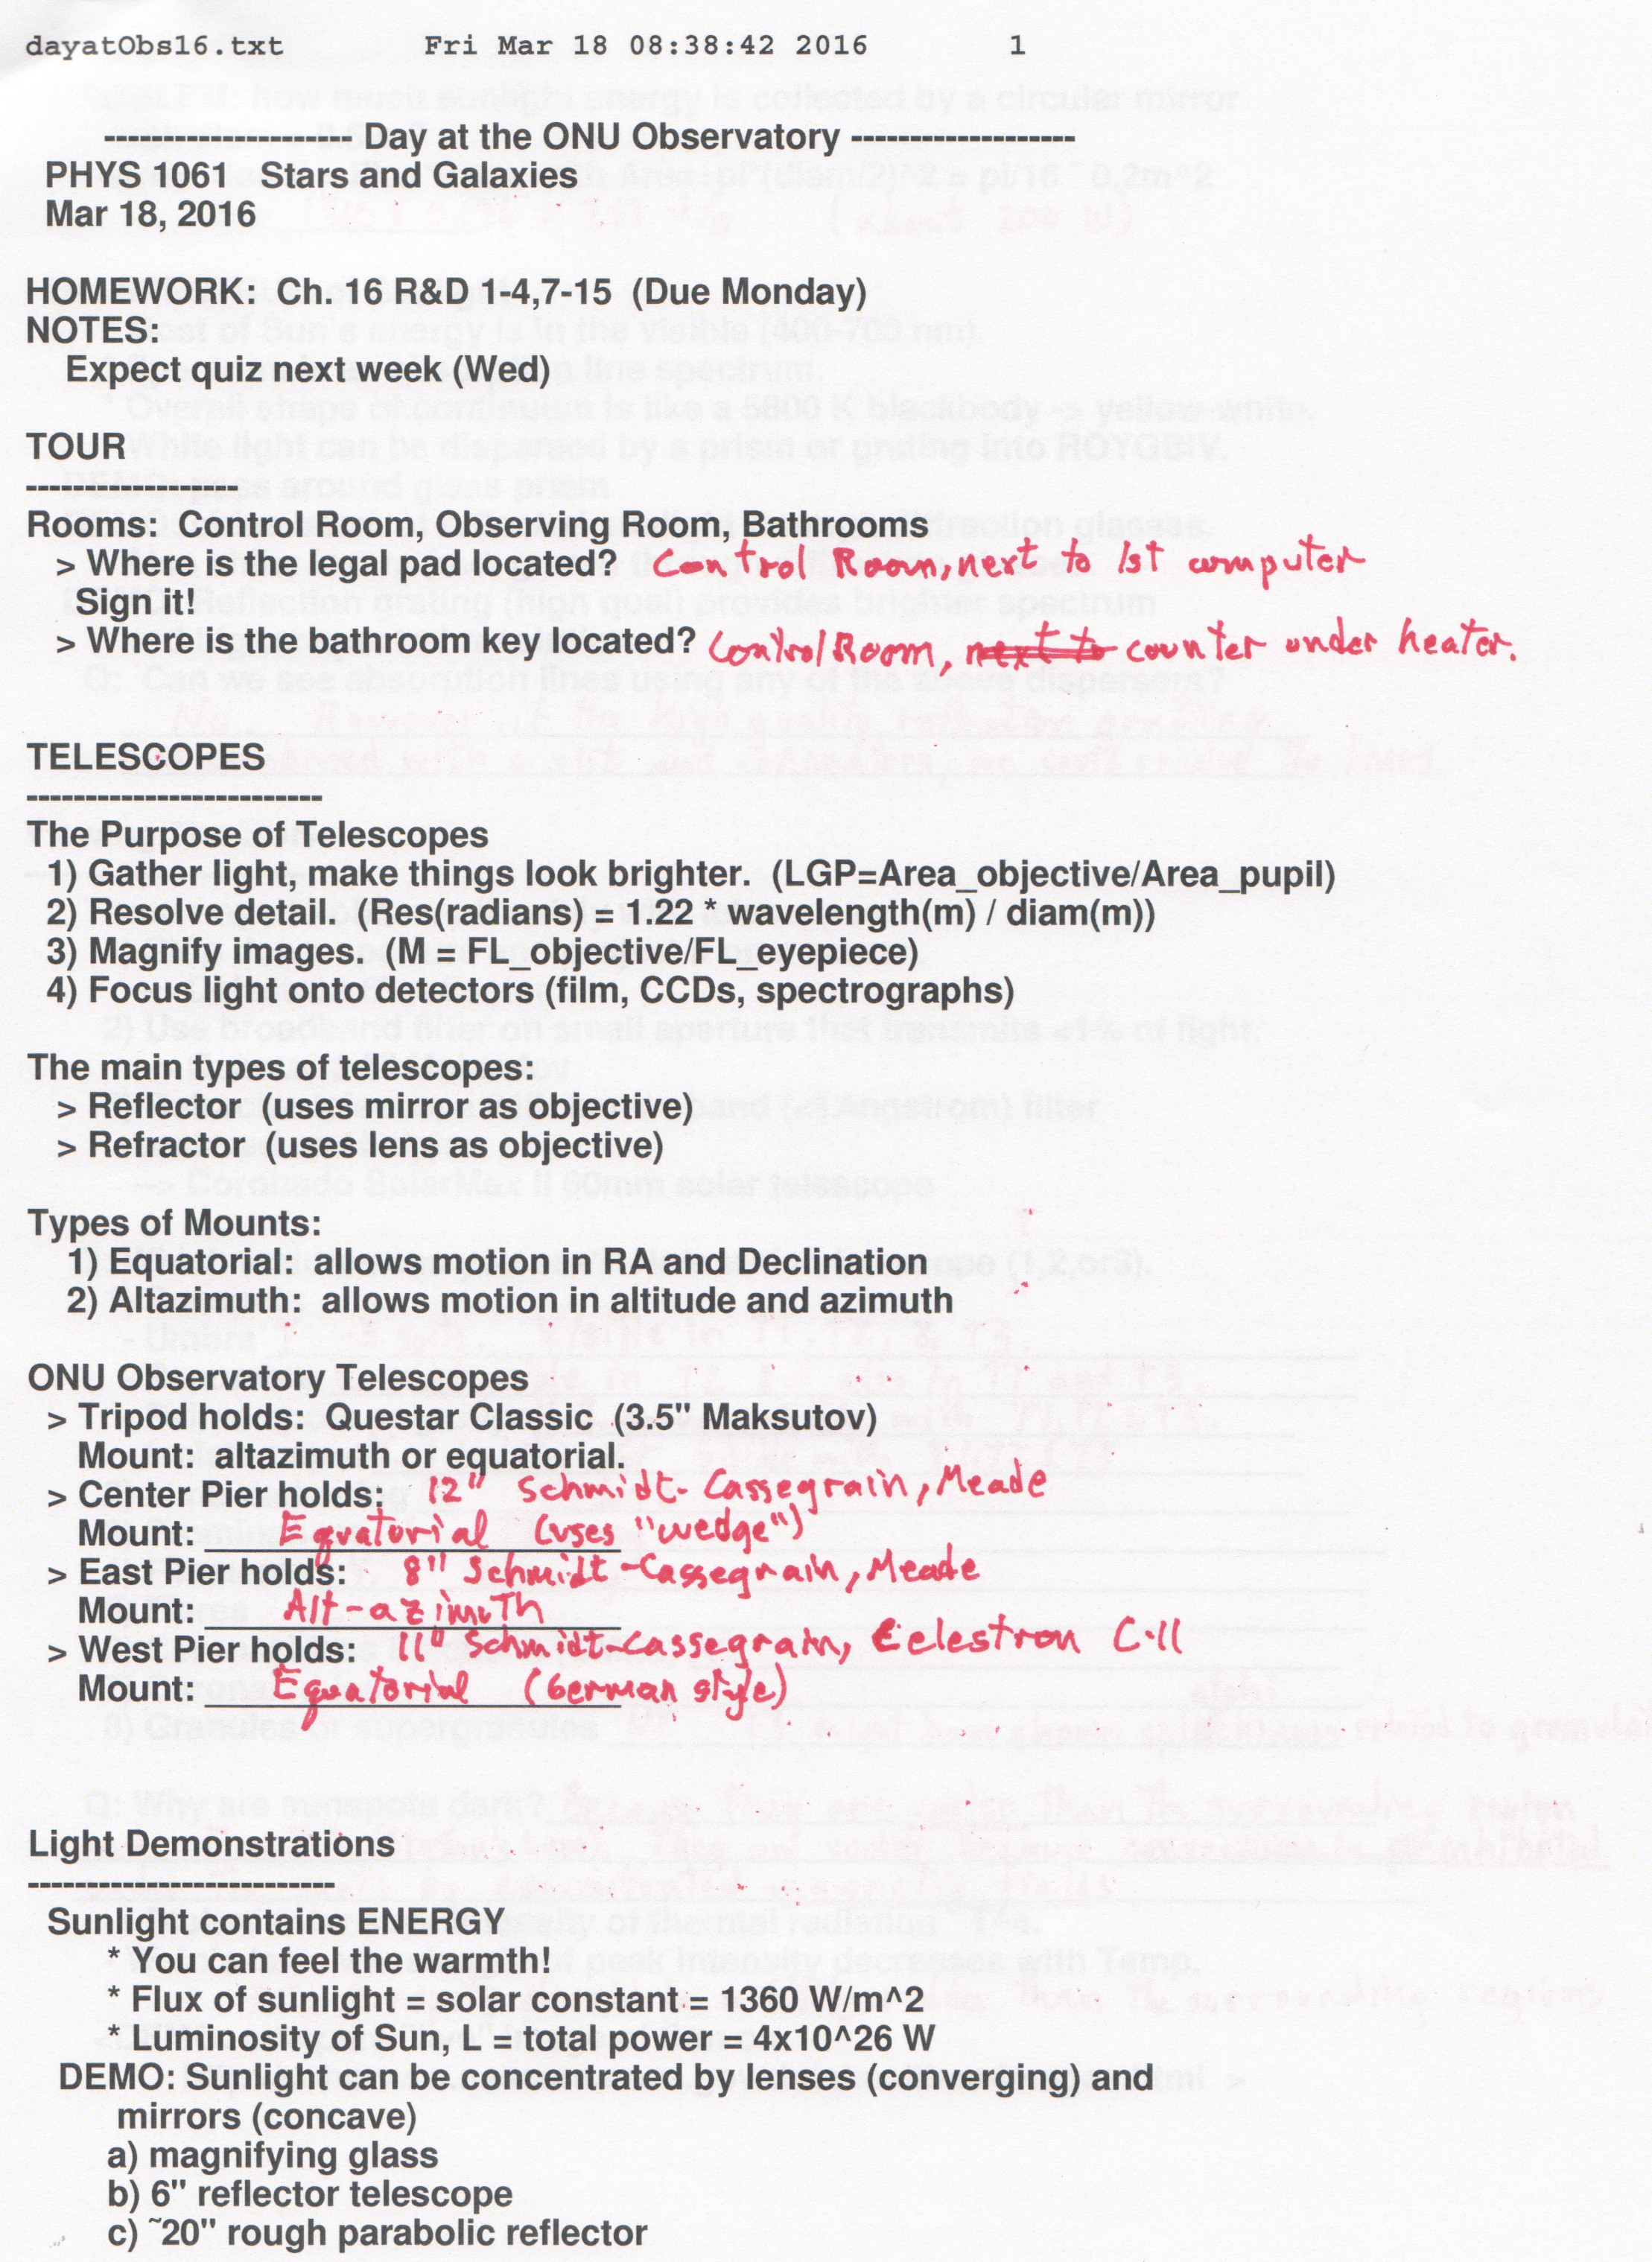 dayatObs16.txt Fri Mar 18 08:38:42 2016 1
--------------------- Day at the ONU Observatory -------------------
PHYS 1061 Stars and Galaxies
Mar 18, 2016
HOMEWORK: Ch. 16 R&D 1-4,7-15 (Due Monday)
NOTES:
Expect quiz next week (Wed)
TOUR
------------------
Rooms: Control Room, Observing Room, Bathrooms
> Where is the legal pad located? Control Room, next to 1st computer
Sign it!
> Where is the bathroom key located? Control Room, next to counter under heater.
TELESCOPES
-------------------------
The Purpose of Telescopes
1) Gather light, make things look brighter. (LGP=Area_objective/Area_pupil)
2) Resolve detail. (Res(radians) = 1.22 * wavelength(m) / diam(m))
3) Magnify images. (M = FL_objective/FL_eyepiece)
4) Focus light onto detectors (film, CCDs, spectrographs)
The main types of telescopes:
> Reflector (uses mirror as objective)
> Refractor (uses lens as objective)
Types of Mounts:
1) Equatorial: allows motion in RA and Declination
2) Altazimuth: allows motion in altitude and azimuth
ONU Observatory Telescopes
> Tripod holds: Questar Classic (3.5" Maksutov)
Mount: altazimuth or equatorial.
> Center Pier holds: 12" Schmidt-Cassegrain, Meade
Mount: Equatorial (uses "wedge")
> East Pier holds: 8" Schmidt-Cassegrain, Meade
Mount: Alt-azimuth
> West Pier holds: 11" Schmidt-Cassegrain, Celestron C-11
Mount: Equatorial (German style)
Light Demonstrations
--------------------------
Sunlight contains ENERGY
* You can feel the warmth!
* Flux of sunlight = solar constant = 1360 W/m^2
* Luminosity of Sun, L = total power = 4x10^26 W
DEMO: Sunlight can be concentrated by lenses (converging) and
mirrors (concave)
a) magnifying glass
b) 6" reflector telescope
c) ~20" rough parabolic reflector